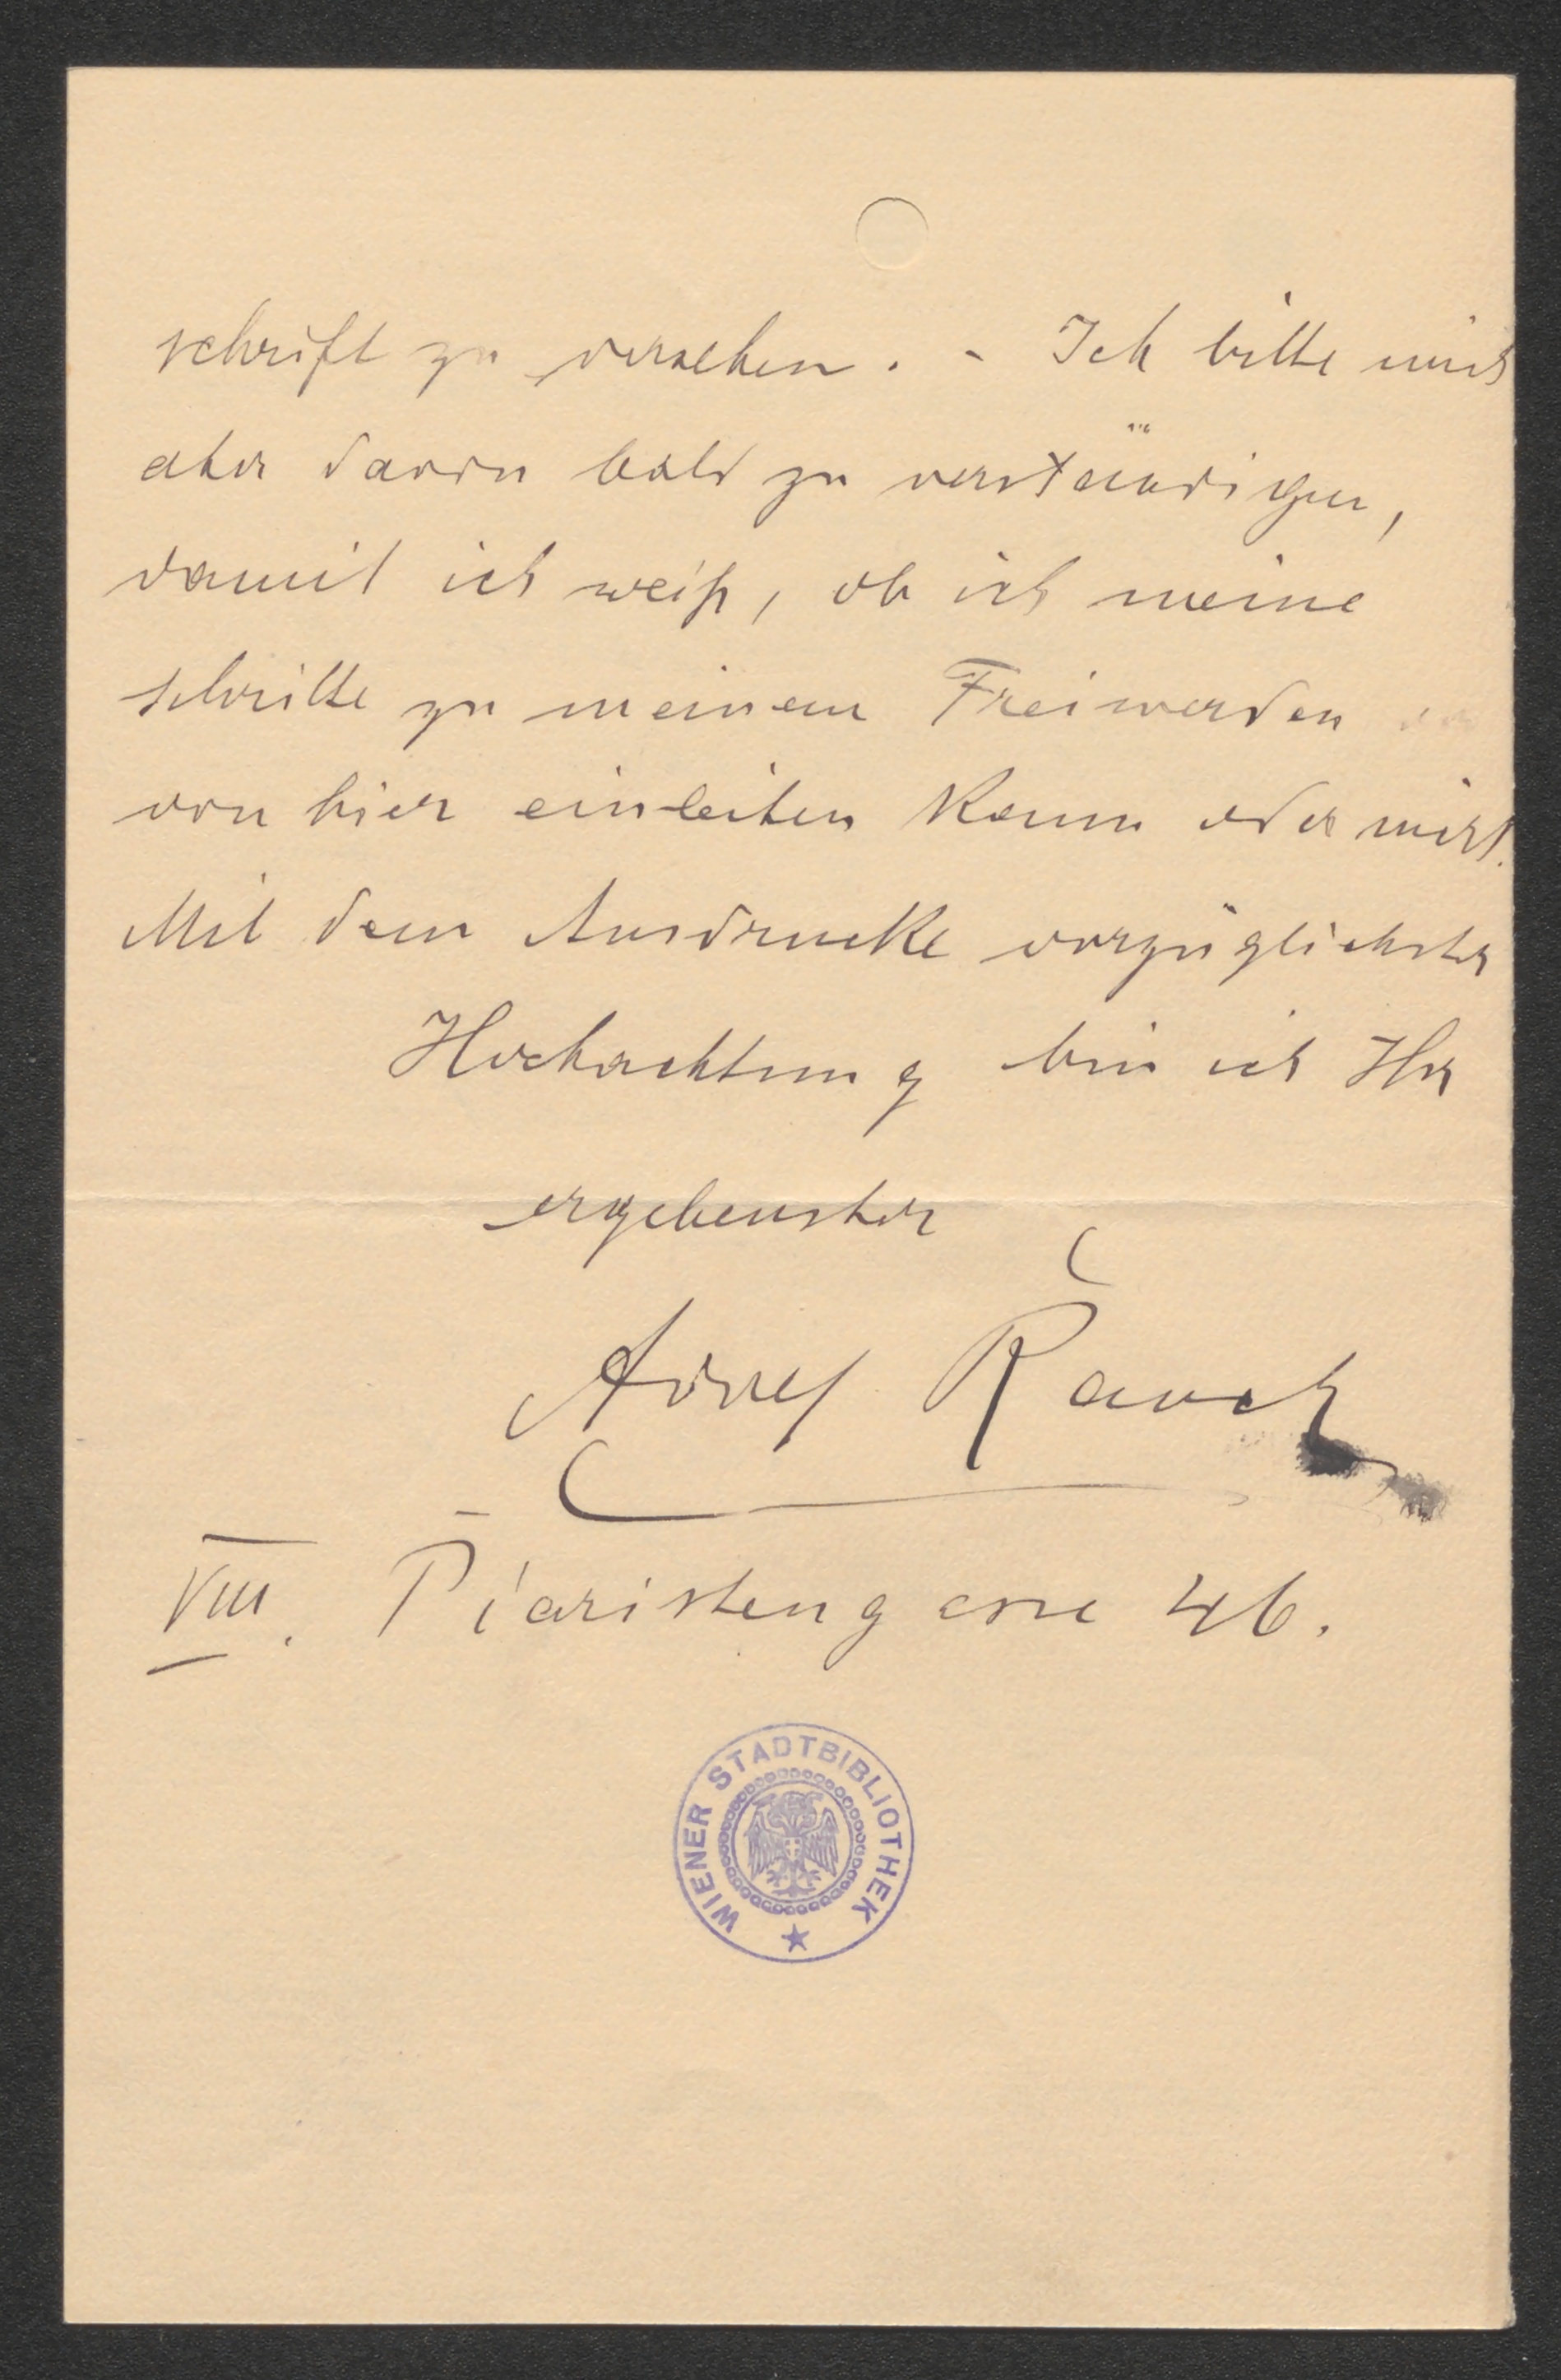 schrift zu versehen. - Ich bitte mich
aber davon bald zu verständigen,
damit ich weiß, ob ich meine
schritte zu meinem Freiwerden
von hier einleiten kann oder nicht.
Mit dem Ausdrucke vorzüglichster
Hochachtung bin ich Ihr
ergebenster
Adolf Rauch
VIII. Piaristengasse 46.
WIENER STADTBIBLIOTHEK